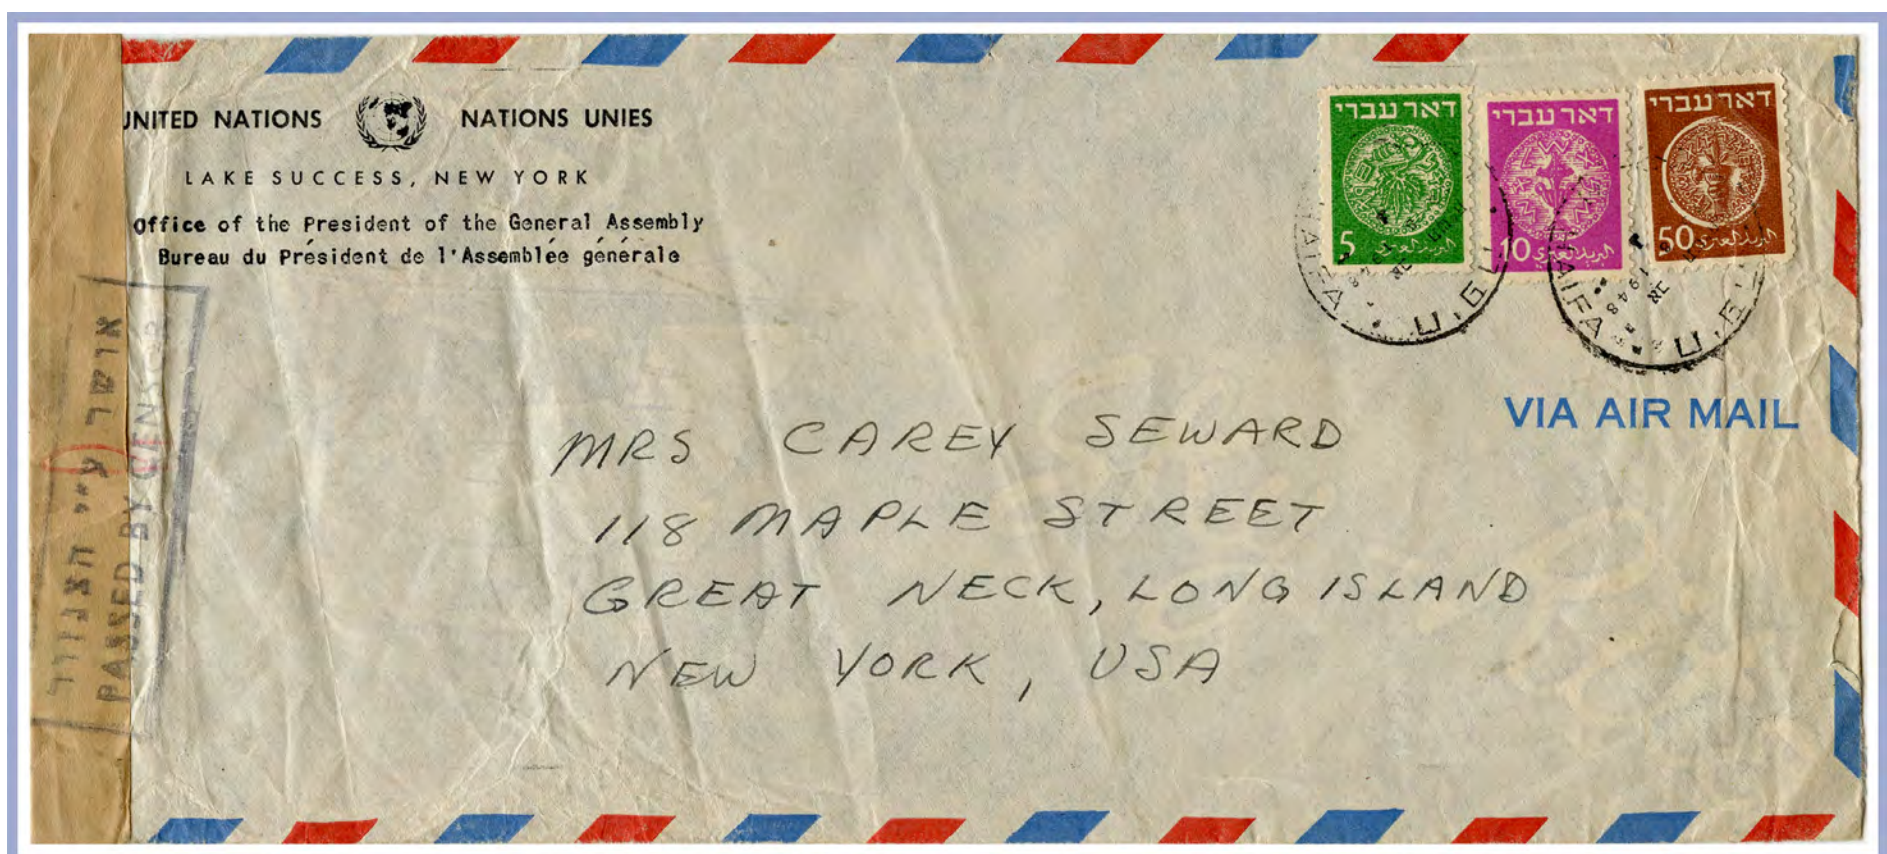 UNITED NATIONS NATIONS UNIES
LAKE SUCCESS, NEW YORK
Office of the President of the General Assembly
Bureau du Président de l'Assemblée générale
דאר עברי
5 البريد العبري
דאר עברי
10 البريد العبري
דאר עברי
50 البريد العبري
HAIFA
HAIFA
1948
VIA AIR MAIL
MRS CAREY SEWARD
118 MAPLE STREET
GREAT NECK, LONG ISLAND
NEW YORK, USA
אושר ע״י הצנזורה
PASSED BY CENSOR